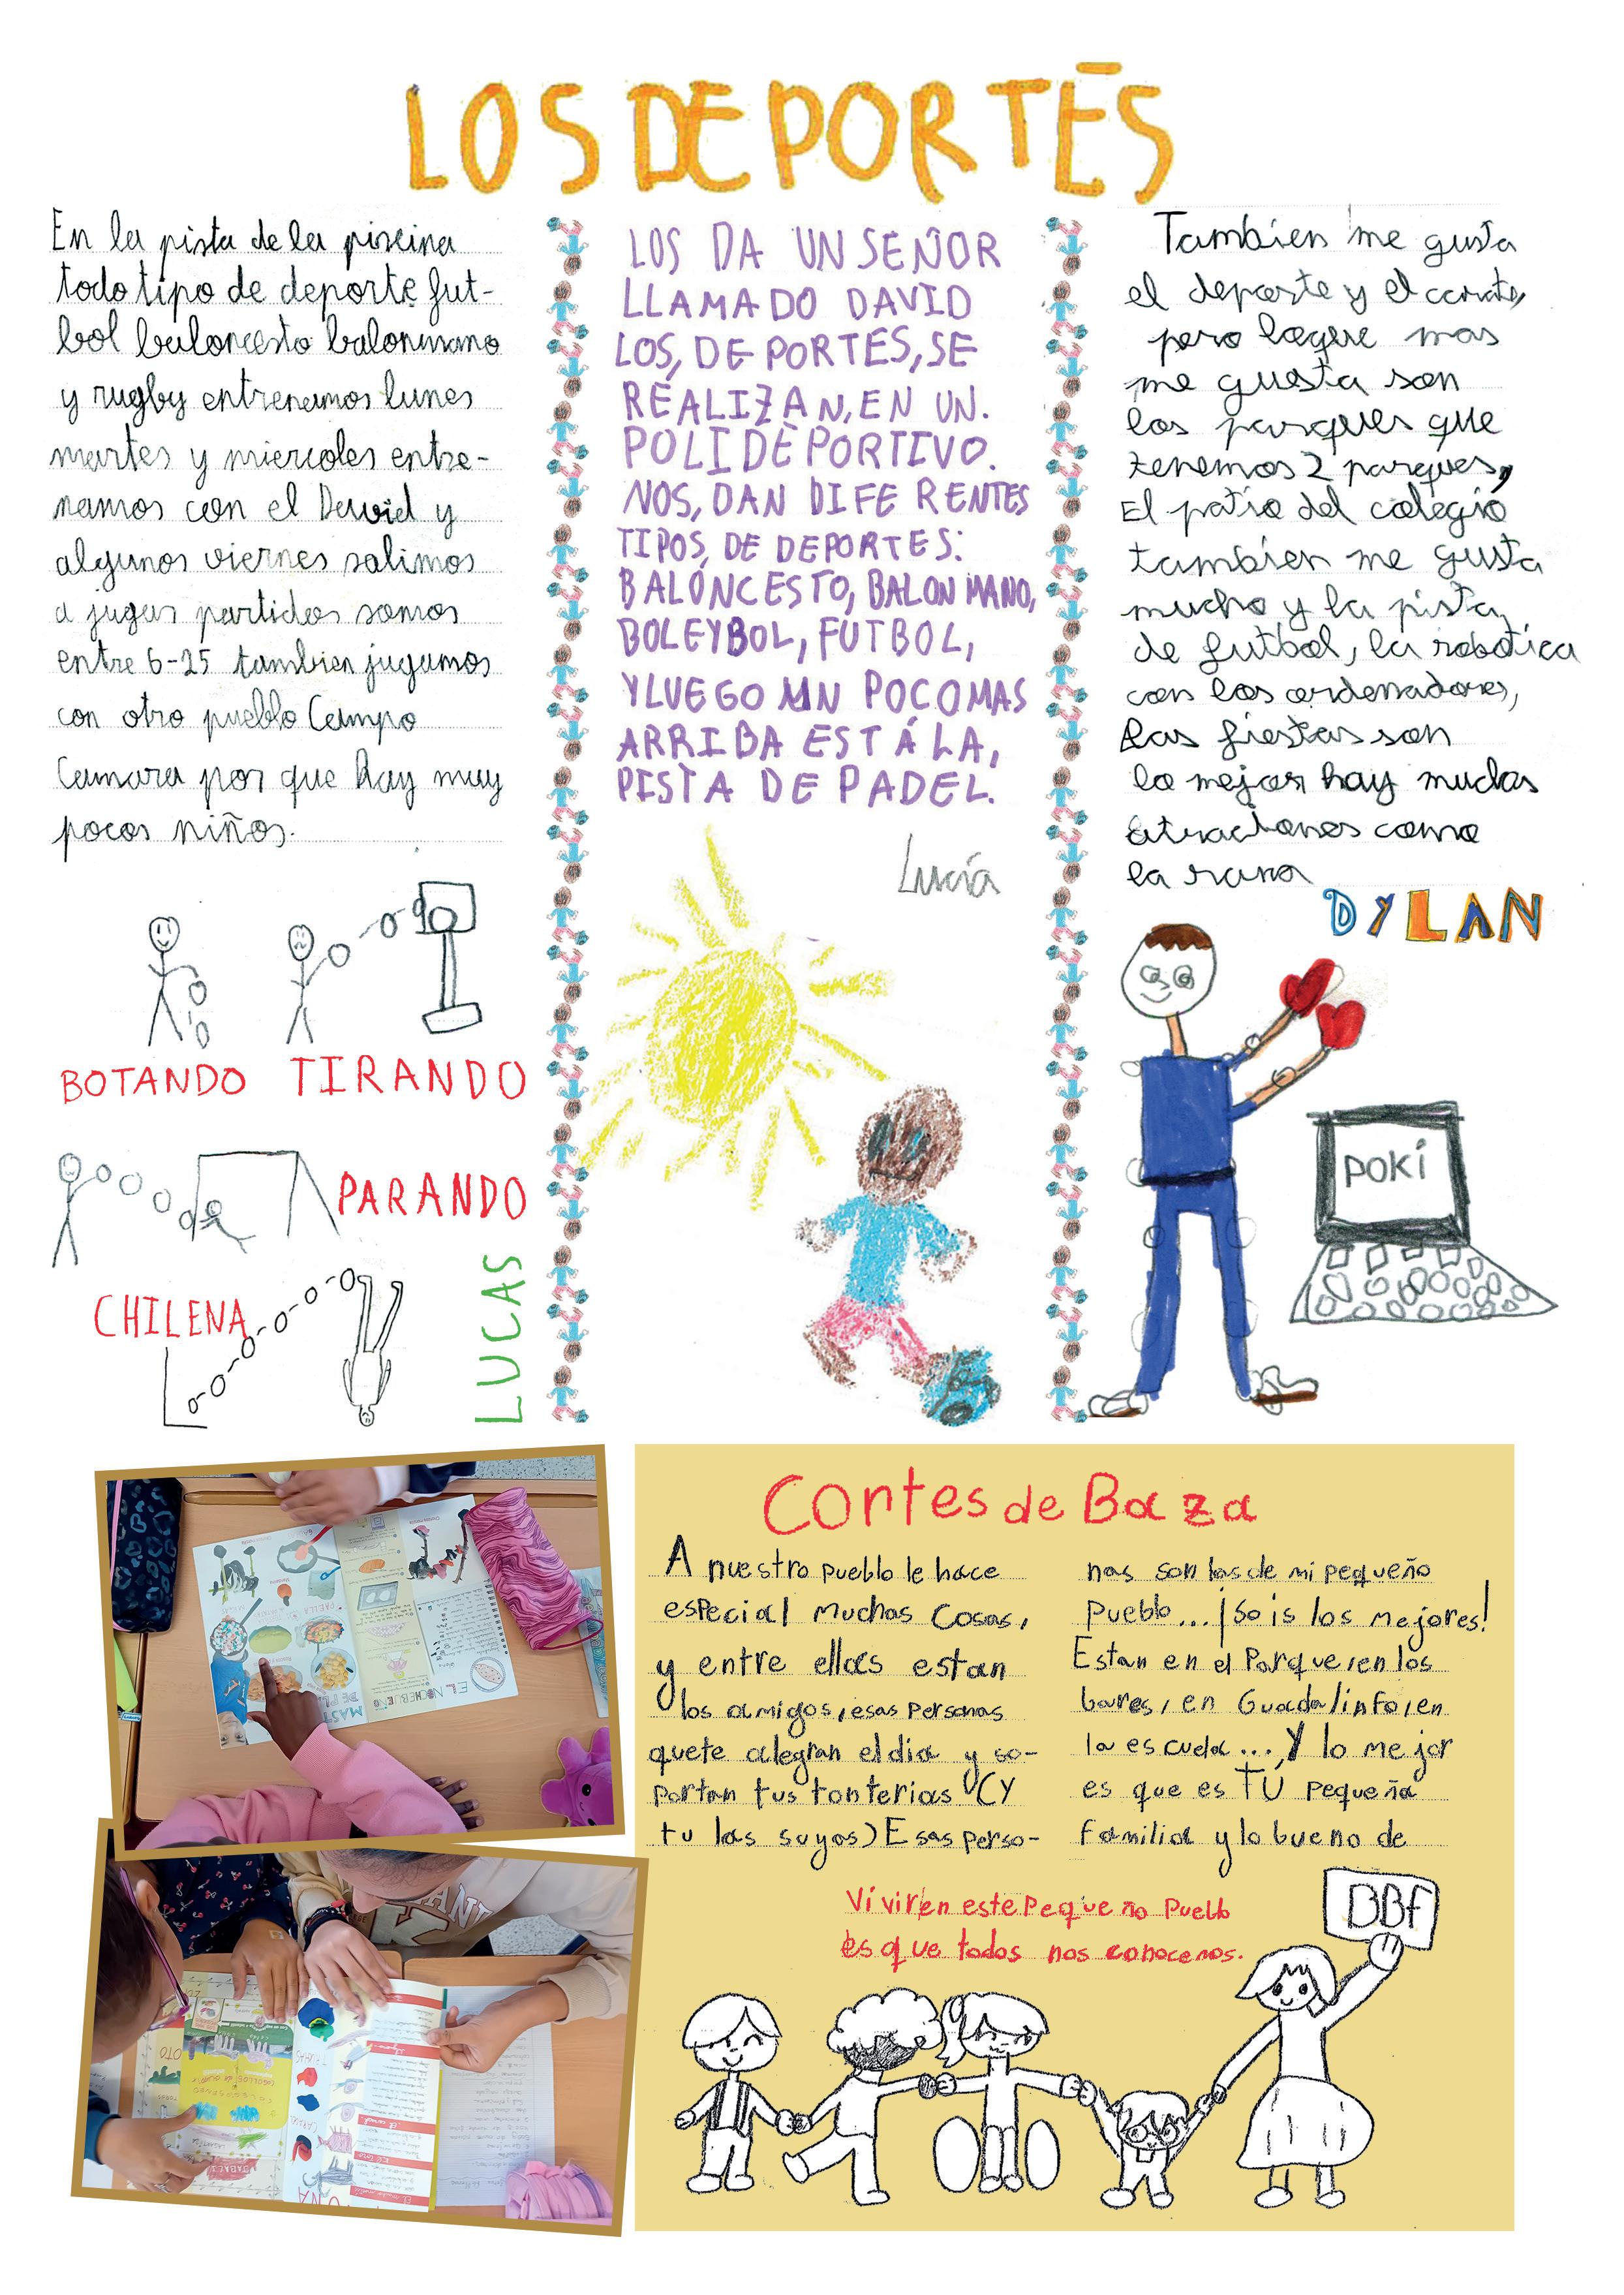 LOS DEPORTES
En la pista de la piscina
todo tipo de deporte fut-
bol baloncesto balonmano
y rugby entrenamos lunes
martes y miercoles entre-
namos con el David y
algunos viernes salimos
a jugar partidos somos
entre 6-25 tambien jugamos
con otro pueblo Campo
Camara por que hay muy
pocos niños.
BOTANDO TIRANDO
PARANDO
CHILENA
LUCAS
LOS DA UN SEÑOR
LLAMADO DAVID
LOS, DEPORTES, SE
REALIZAN, EN UN.
POLIDEPORTIVO.
NOS, DAN DIFERENTES
TIPOS DE DEPORTES:
BALÓNCESTO, BALONMANO,
BOLEYBOL, FUTBOL,
Y LUEGO UN POCO MAS
ARRIBA ESTÁ LA,
PISTA DE PADEL.
Lucía
Tambien me gusta
el deporte y el
pero loque mas
me gusta son
los parques que
tenemos 2 parques,
El patio del colegio
tambien me gusta
mucho y la pista
de futbol, la robotica
con los ordenadores,
Las fiestas son
lo mejor hay muchas
atraciones como
la rana
DYLAN
POKI
Cortes de Baza
A nuestro pueblo le hace
especial muchas cosas,
y entre ellas estan
los amigos, esas personas
quete alegran el dia y so-
portan tus tonterias (Y
tu las suyas) Esas perso-
nas son las de mi pequeño
pueblo... ¡Sois los mejores!
Estan en el Parque, en los
bares, en Guadalinfo, en
la escuela... Y lo mejor
es que es TÚ pequeña
familia y lo bueno de
Vivir en este Pequeño Pueblo
es que todos nos conocemos.
BBF
EL NOCHEBUENO